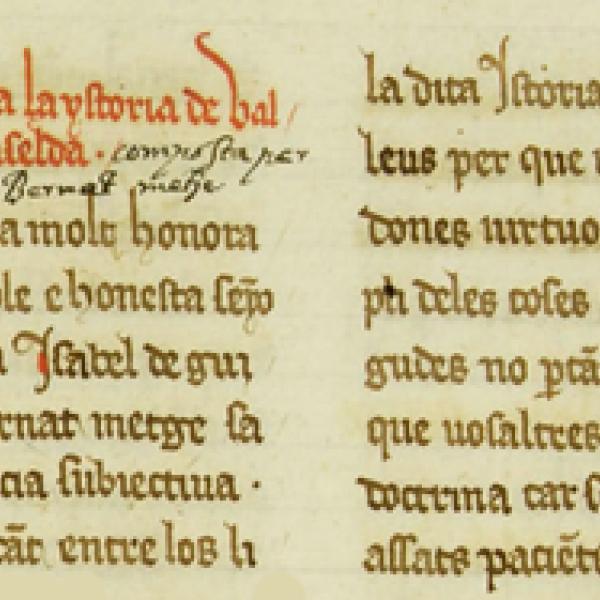 a la ystoria de val
selda. composta per
Bernat metge
a molt honora
ble e honesta senyo
a Isabel de gui
rnat metge sa
cia subiectiua .
tāt entre los li
la dita Istoria
leus per que
dones uirtuo
ph deles coses
gudes no ptā
que uosaltres
doctrina car s
assats paciēt